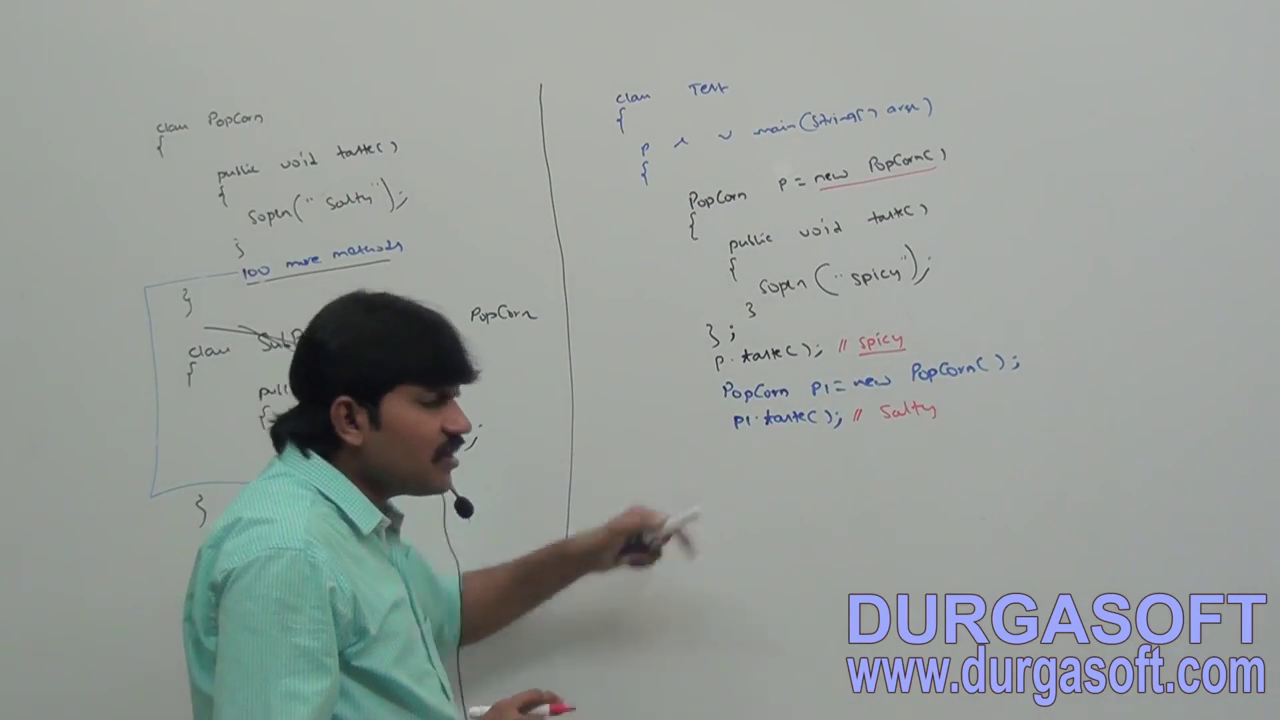 class PopCorn
{
public void taste()
{
sopln("Salty");
}
100 more methods
}
class PopCorn
{
{
}
class Test
{
p s v main(String[] args)
{
PopCorn p = new PopCorn()
{
public void taste()
{
sopln("spicy");
}
};
p.taste(); // spicy
PopCorn p1 = new PopCorn();
p1.taste(); // Salty
DURGASOFT
www.durgasoft.com